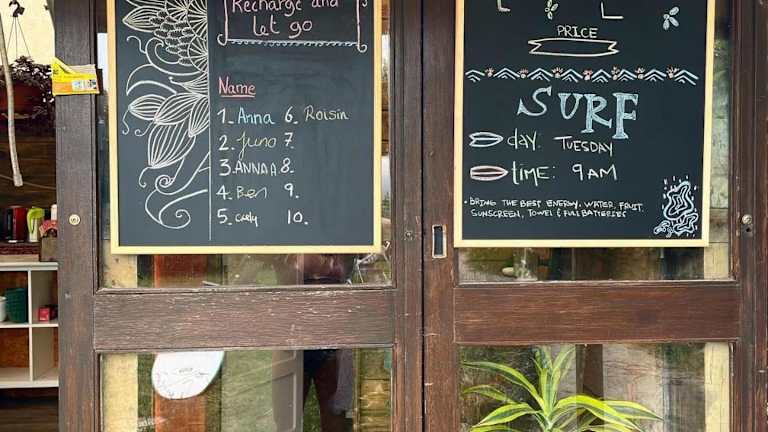 Recharge and
let go
Name
1. Anna 6. Roisin
2. Juno 7.
3. ANNA A 8.
4. Ben 9.
5. carly 10.
PRICE
SURF
day: TUESDAY
time: 9AM
• BRING THE BEST ENERGY, WATER, FRUIT,
SUNSCREEN, TOWEL & FULL BATTERIES